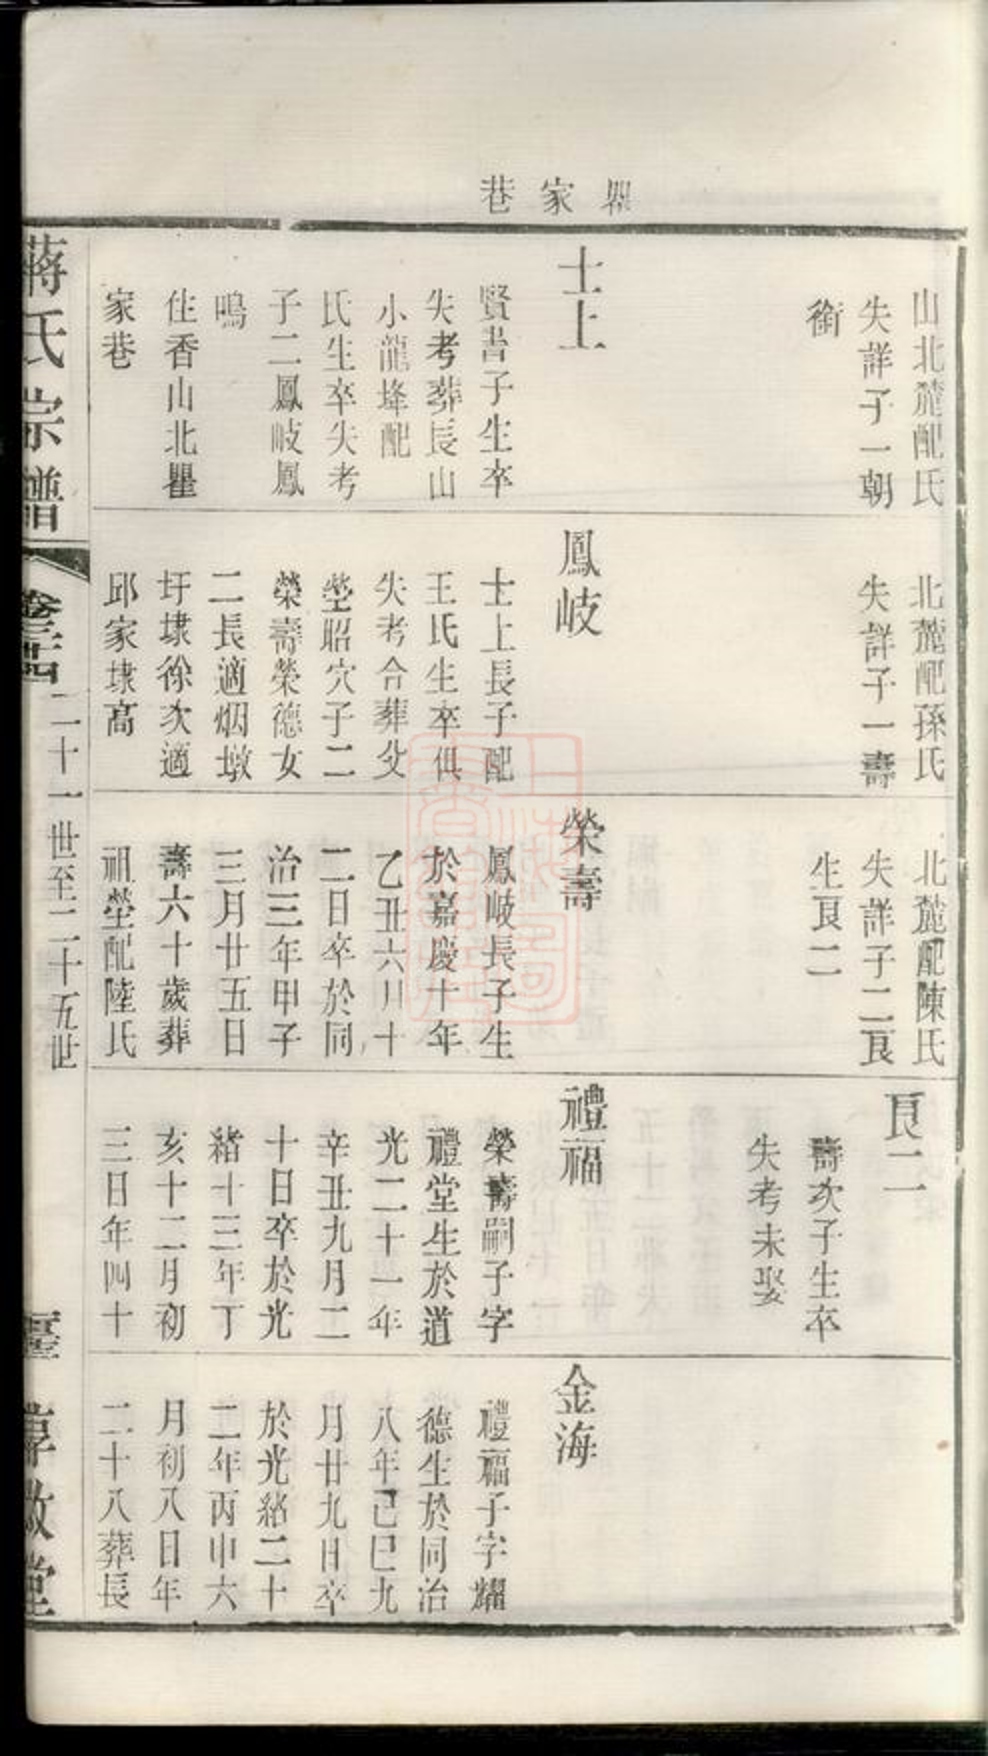 瞿家巷
山北麓配氏
失詳子一朝
銜
士上
賢書子生卒
失考葬長山
小龍垟配
氏生卒失考
子二鳳岐鳳
鳴
住香山北瞿
家巷
北麓配孫氏
失詳子一壽
鳳岐
士上長子配
王氏生卒俱
失考合葬父
塋昭穴子二
榮壽榮德女
二長適烟墩
圩埭徐次適
邱家埭高
北麓配陳氏
失詳子二艮
生艮二
榮壽
鳳岐長子生
於嘉慶十年
乙丑六月十
二日卒於同
治三年甲子
三月廿五日
壽六十歲葬
祖塋配陸氏
艮二
壽次子生卒
失考未娶
禮福
榮壽嗣子字
禮堂生於道
光二十一年
辛丑九月二
十日卒於光
緒十三年丁
亥十二月初
三日年四十
金海
禮福子字耀
德生於同治
八年己巳九
月廿九日卒
於光緒二十
二年丙申六
月初八日年
二十八葬長
蔣氏宗譜
卷三十四
二十一世至二十五世
敦堂